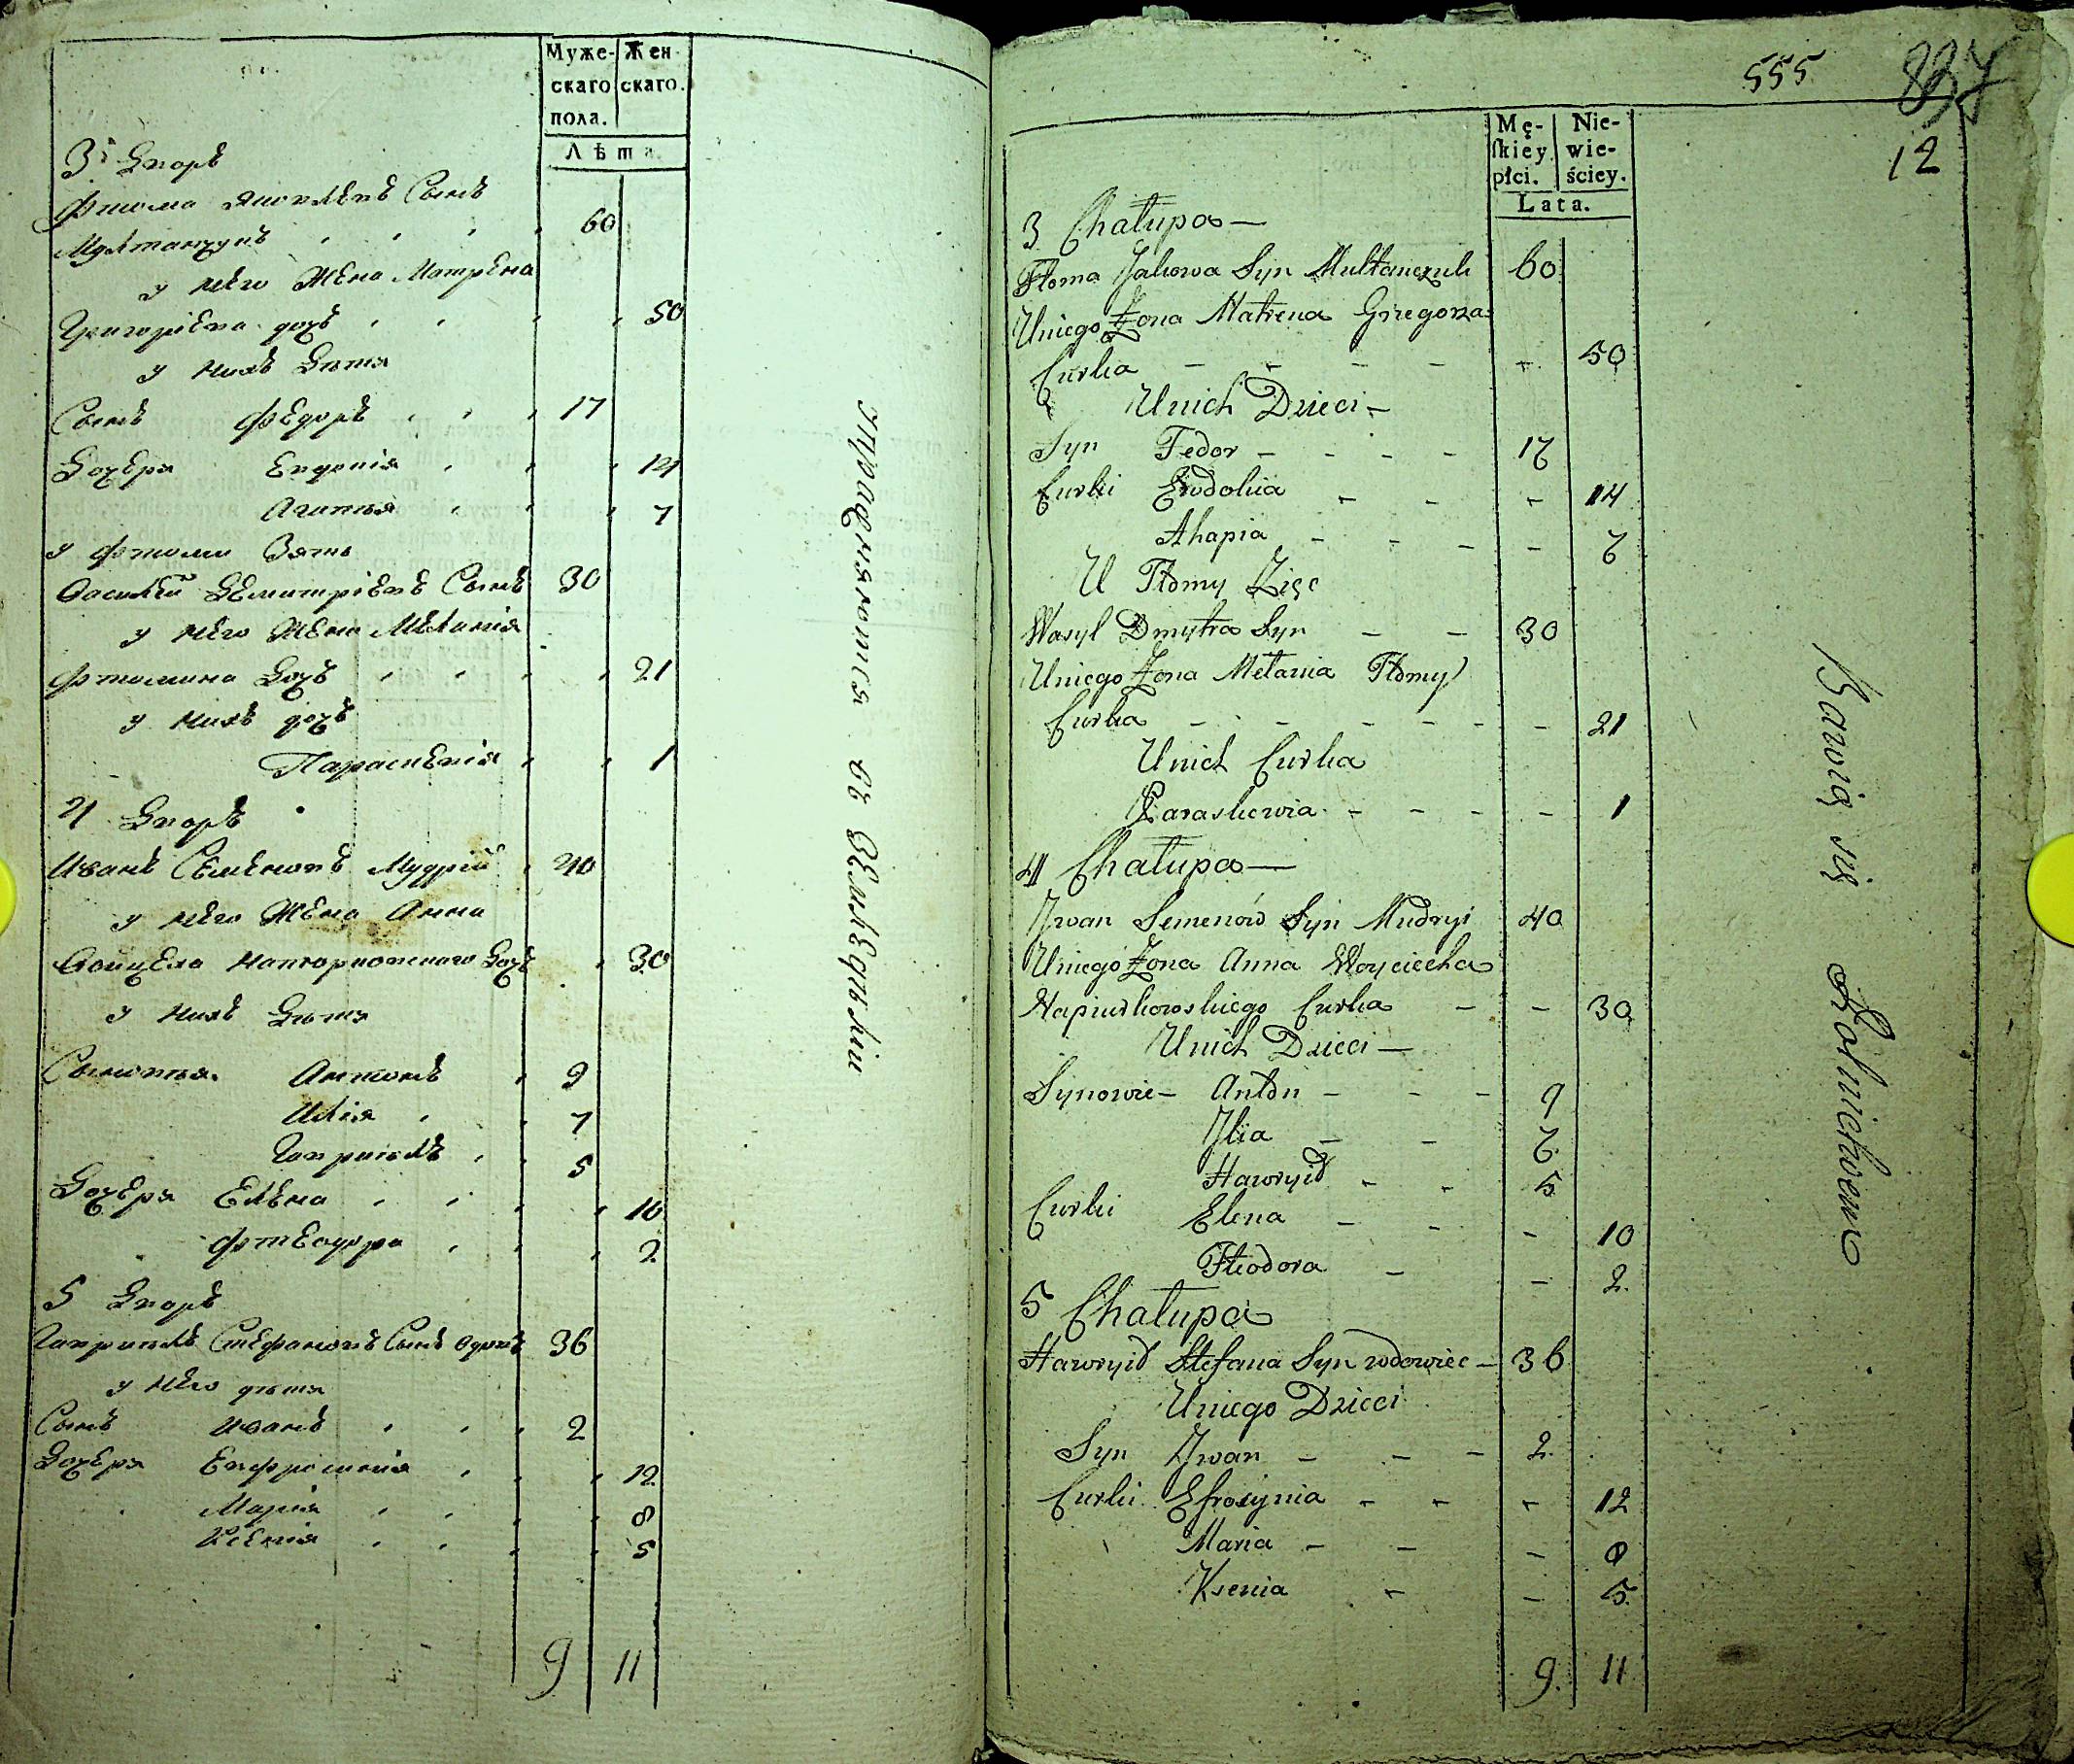 Муже- Жен-
скаго скаго.
пола.
Лѣта.
3й Дворъ
Фтома Яковлевъ Сынъ
Мултанчукъ 60
у него Жена Матрена
Григоріева дочь 50
у нихъ Дѣти
Сынъ Федоръ 17
Дочери Евдокія 14
Агапія 7
у Фтомы Зять
Василій Демитріевъ Сынъ 30
у него Жена Меланія
Фтомина Дочь 21
у нихъ дочь
Параскевія 1
4 Дворъ
Иванъ Семеновъ Мудрій 40
у него Жена Анна
Дочь 30
у нихъ Дѣти
Сыновья Антонъ 9
Илія 7
Гавріилъ 5
Дочери Елена 10
Фтеодора 2
5 Дворъ
Гавріилъ Стефановъ Сынъ вдовъ 36
у него дѣти
Сынъ Иванъ 2
Дочери Евфросинія 12
Марія 8
Ксенія 5
9 11
Упражняются въ Земледѣліи
555 837
12
Mę- Nie-
skiey wie-
płci. ściey.
Lata.
3 Chałupa —
Ftoma Jakowa Syn Multanczuk 60
Uniego Żona Matrena Gregorza
Curka - - - - - 50
Unich Dzieci —
Syn Fedor - - - - 17
Curki Ewdokia - - - 14
Ahapia - - - - 7
U Ftomy Zięc
Wasyl Dmytra Syn - - 30
Uniego Żona Melania Ftomy
Curka - - - - - - 21
Unich Curka
Paraskewia - - - - 1
4 Chałupa —
Jwan Semenów Syn Mudryi 40
Uniego Żona Anna Woyciecha
Napiurkowskiego Curka - - 30
Unich Dzieci —
Synowie - Anton - - - 9
Jlia - - 7
Hawryił - - 5
Curki Elena - - - 10
Fteodora - - 2
5 Chałupa
Hawryił Stefana Syn wdowiec - 36
Uniego Dzieci
Syn Jwan - - - 2
Curki Efrosynia - - - 12
Maria - - - 8
Ksenia - - 5
9. 11
Bawią się Rolnictwem